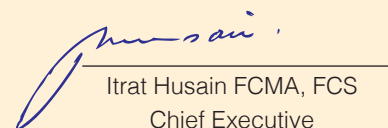 Itrat Husain FCMA, FCS
Chief Executive